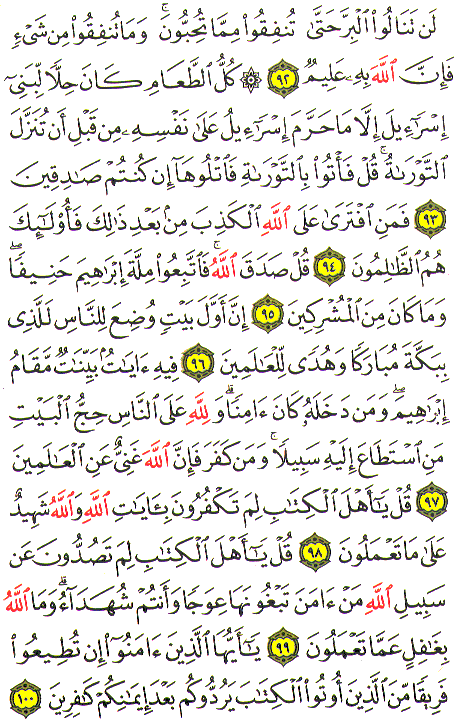 لَن تَنَالُوا۟ ٱلْبِرَّ حَتَّىٰ تُنفِقُوا۟ مِمَّا تُحِبُّونَ ۚ وَمَا تُنفِقُوا۟ مِن شَىْءٍ
فَإِنَّ ٱللَّهَ بِهِۦ عَلِيمٌ ٩٢ ۞ كُلُّ ٱلطَّعَامِ كَانَ حِلًّا لِّبَنِىٓ
إِسْرَٰٓءِيلَ إِلَّا مَا حَرَّمَ إِسْرَٰٓءِيلُ عَلَىٰ نَفْسِهِۦ مِن قَبْلِ أَن تُنَزَّلَ
ٱلتَّوْرَىٰةُ ۗ قُلْ فَأْتُوا۟ بِٱلتَّوْرَىٰةِ فَٱتْلُوهَآ إِن كُنتُمْ صَٰدِقِينَ
٩٣ فَمَنِ ٱفْتَرَىٰ عَلَى ٱللَّهِ ٱلْكَذِبَ مِنۢ بَعْدِ ذَٰلِكَ فَأُو۟لَٰٓئِكَ
هُمُ ٱلظَّٰلِمُونَ ٩٤ قُلْ صَدَقَ ٱللَّهُ ۗ فَٱتَّبِعُوا۟ مِلَّةَ إِبْرَٰهِيمَ حَنِيفًا ۖ
وَمَا كَانَ مِنَ ٱلْمُشْرِكِينَ ٩٥ إِنَّ أَوَّلَ بَيْتٍ وُضِعَ لِلنَّاسِ لَلَّذِى
بِبَكَّةَ مُبَارَكًا وَهُدًى لِّلْعَٰلَمِينَ ٩٦ فِيهِ ءَايَٰتٌۢ بَيِّنَٰتٌ مَّقَامُ
إِبْرَٰهِيمَ ۖ وَمَن دَخَلَهُۥ كَانَ ءَامِنًا ۗ وَلِلَّهِ عَلَى ٱلنَّاسِ حِجُّ ٱلْبَيْتِ
مَنِ ٱسْتَطَاعَ إِلَيْهِ سَبِيلًا ۚ وَمَن كَفَرَ فَإِنَّ ٱللَّهَ غَنِىٌّ عَنِ ٱلْعَٰلَمِينَ
٩٧ قُلْ يَٰٓأَهْلَ ٱلْكِتَٰبِ لِمَ تَكْفُرُونَ بِـَٔايَٰتِ ٱللَّهِ وَٱللَّهُ شَهِيدٌ
عَلَىٰ مَا تَعْمَلُونَ ٩٨ قُلْ يَٰٓأَهْلَ ٱلْكِتَٰبِ لِمَ تَصُدُّونَ عَن
سَبِيلِ ٱللَّهِ مَنْ ءَامَنَ تَبْغُونَهَا عِوَجًا وَأَنتُمْ شُهَدَآءُ ۗ وَمَا ٱللَّهُ
بِغَٰفِلٍ عَمَّا تَعْمَلُونَ ٩٩ يَٰٓأَيُّهَا ٱلَّذِينَ ءَامَنُوٓا۟ إِن تُطِيعُوا۟
فَرِيقًا مِّنَ ٱلَّذِينَ أُوتُوا۟ ٱلْكِتَٰبَ يَرُدُّوكُم بَعْدَ إِيمَٰنِكُمْ كَٰفِرِينَ ١٠٠